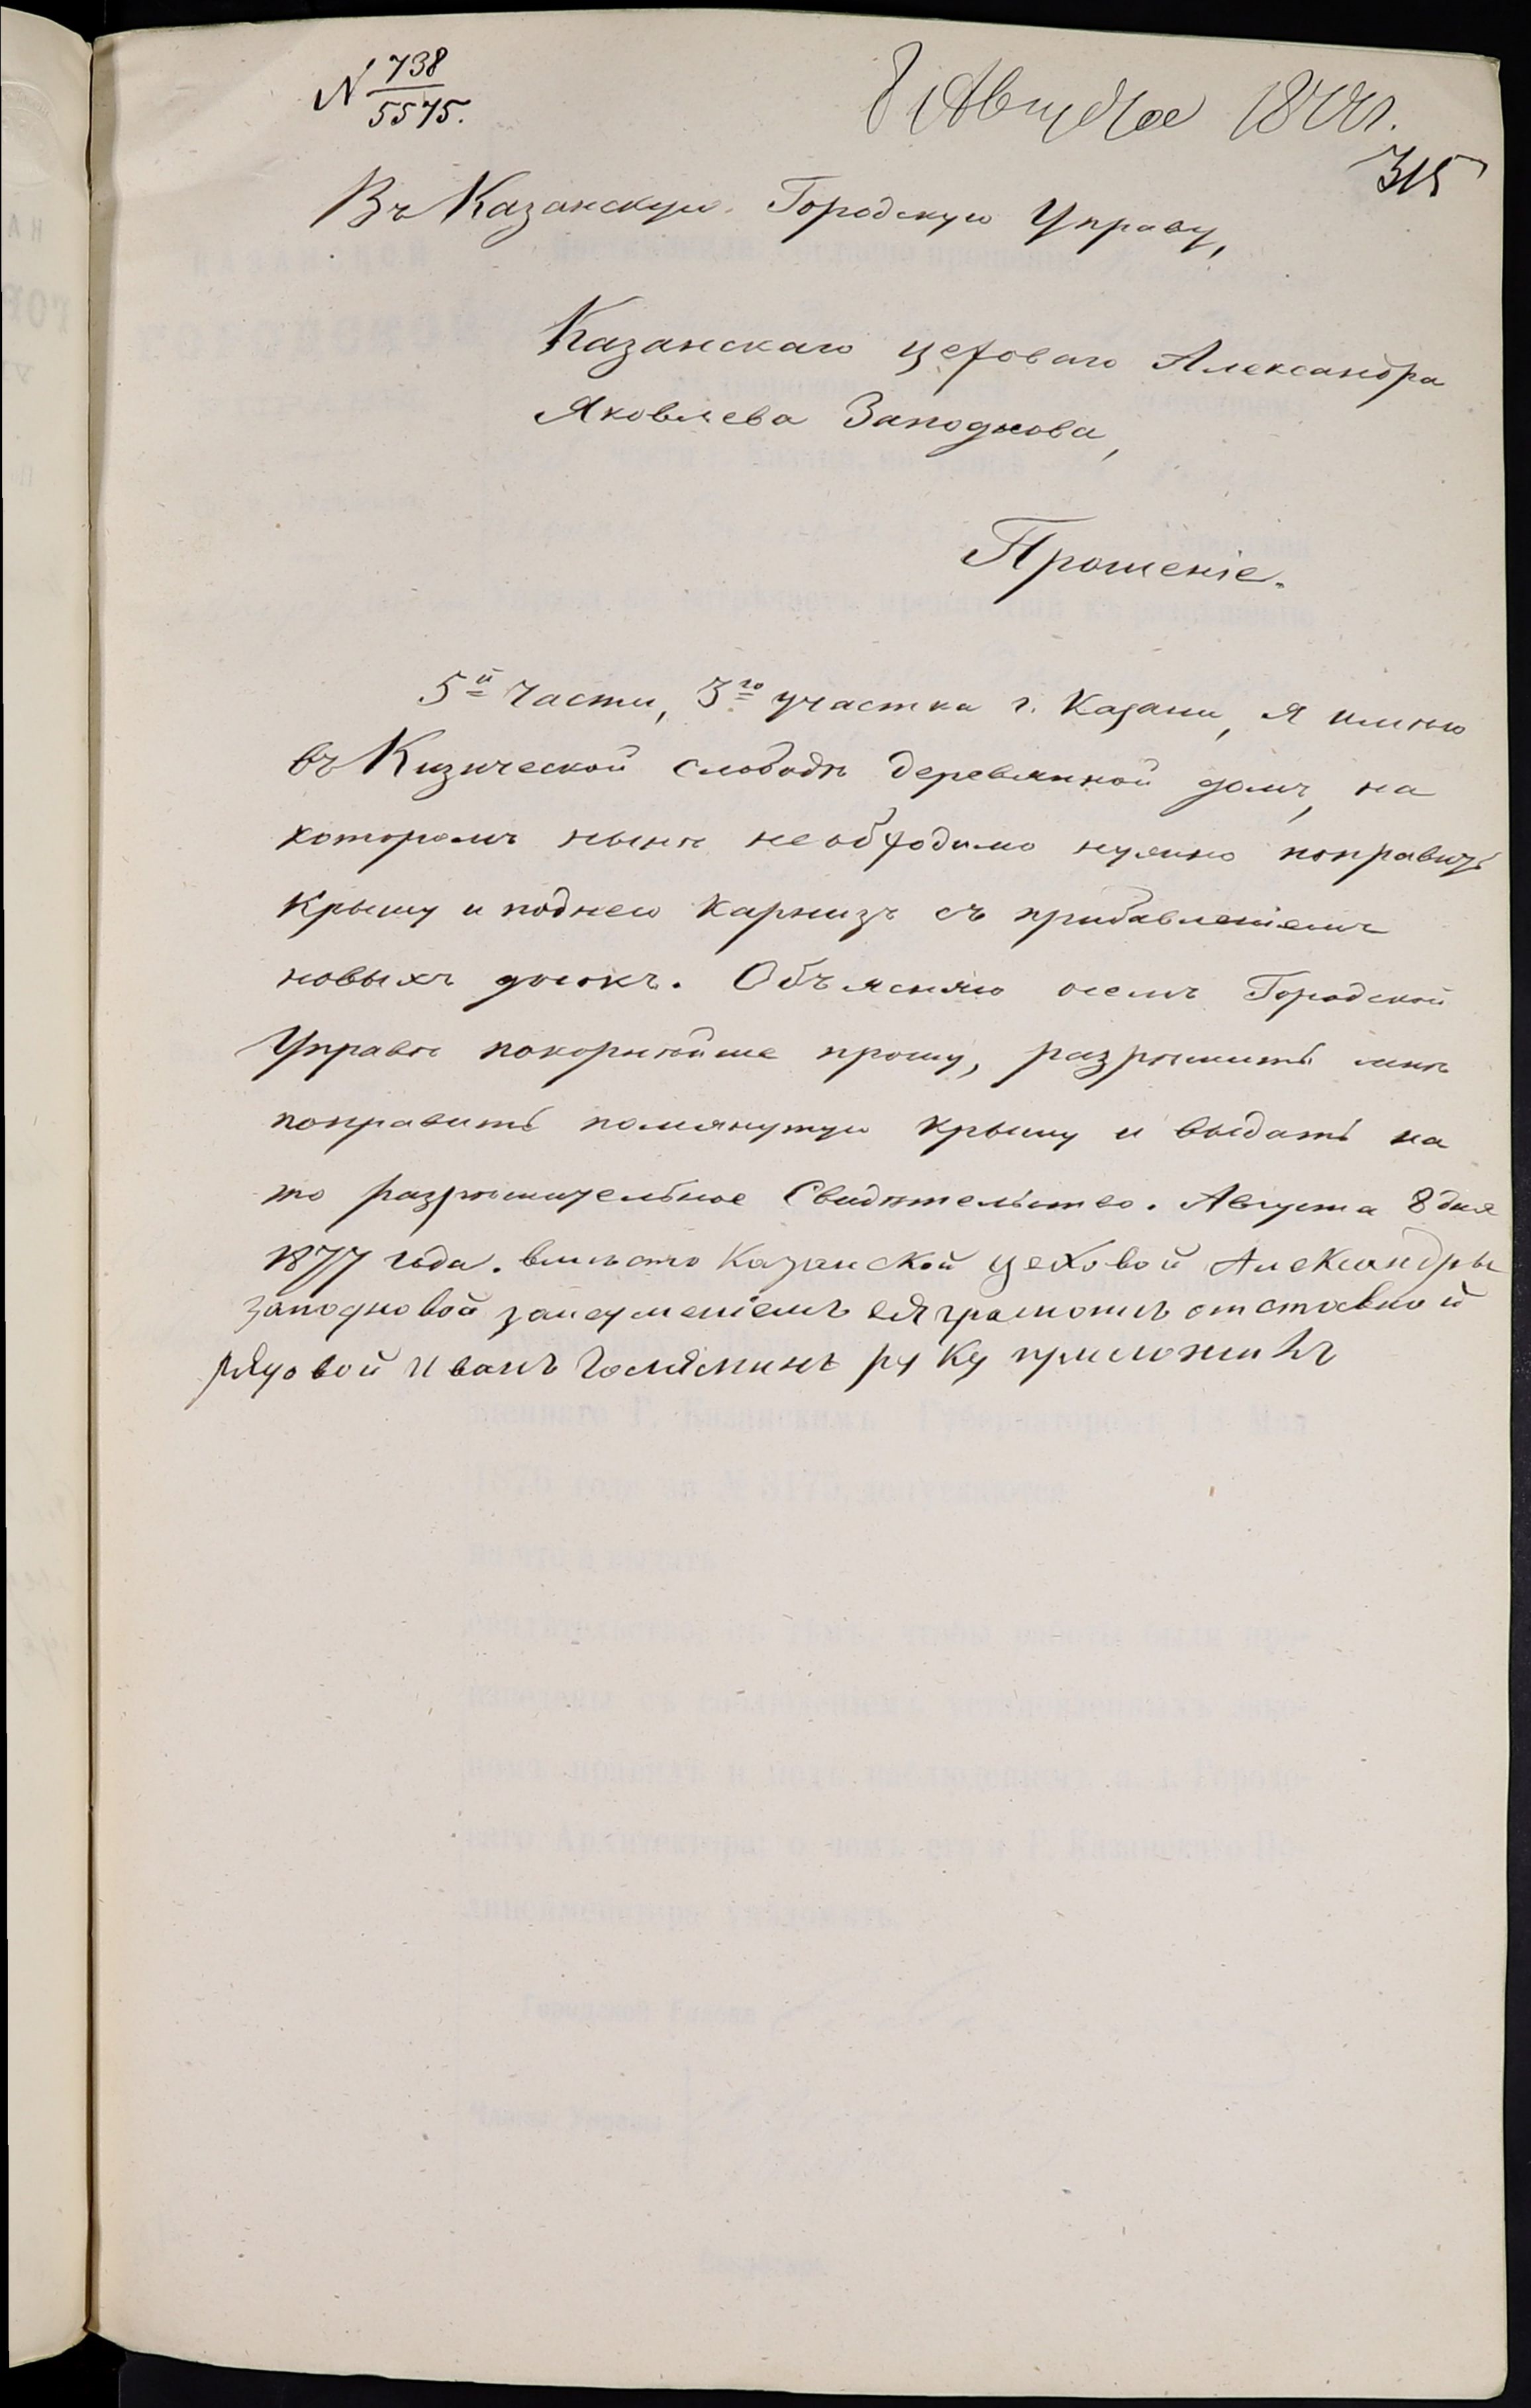 N 738
5575.
8 Августа 1877 г.
315
Въ Казанскую Городскую Управу,
Казанскаго цеховаго Александра
Яковлева Заподнова,
Прошеніе.
5й Части, 3го участка г. Казани, я имею
въ Кизической слободѣ деревянной домъ, на
которомъ нынѣ необходимо нужно поправить
крышу и поднею карнизъ съ прибавленіемъ
новыхъ досокъ. Объясняю осемъ Городской
Управѣ покорнѣйше прошу, разрѣшить мнѣ
поправить помянутую крышу и выдать на
то разрѣшительное Свидѣтельство. Августа 8 дня
1877 года. вмѣсто Казанской цеховой Александры
Заподновой занеумѣніемъ ея грамотѣ отставной
рядовой Иванъ руку приложилъ